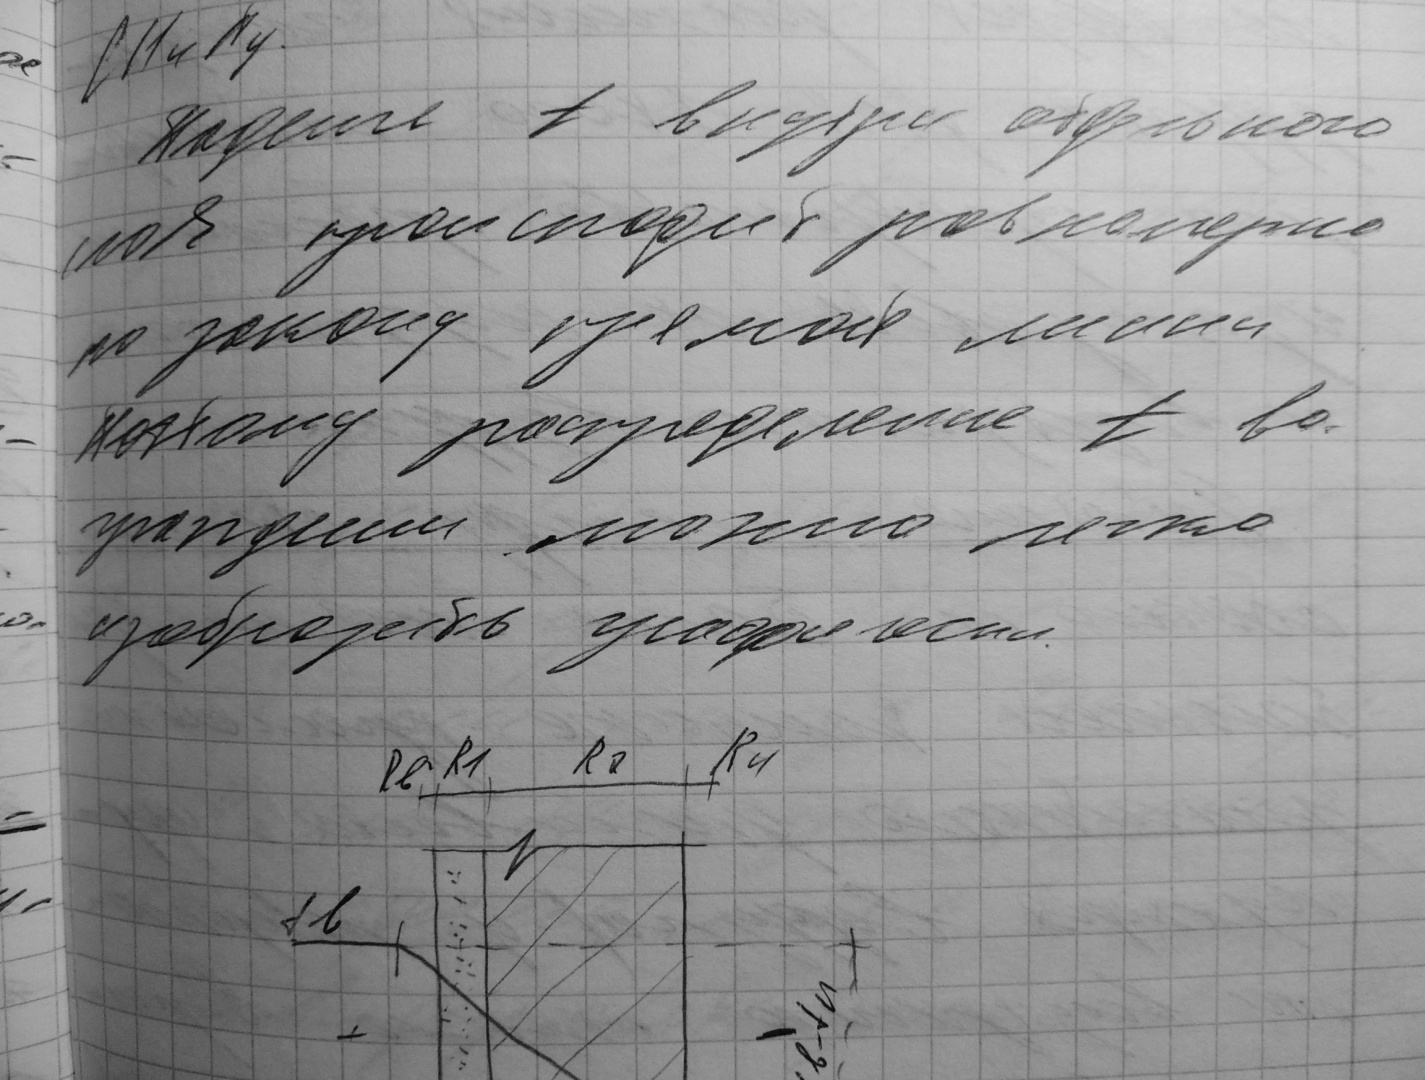 СНиПу.
Падение t внутри отдельного
слоя происходит равномерно
по закону прямой линии
Поэтому распределение t во
ограждении можно легко
изобразить графически.
Rв R1 R2 Rн
tв
+
-
tв-tн